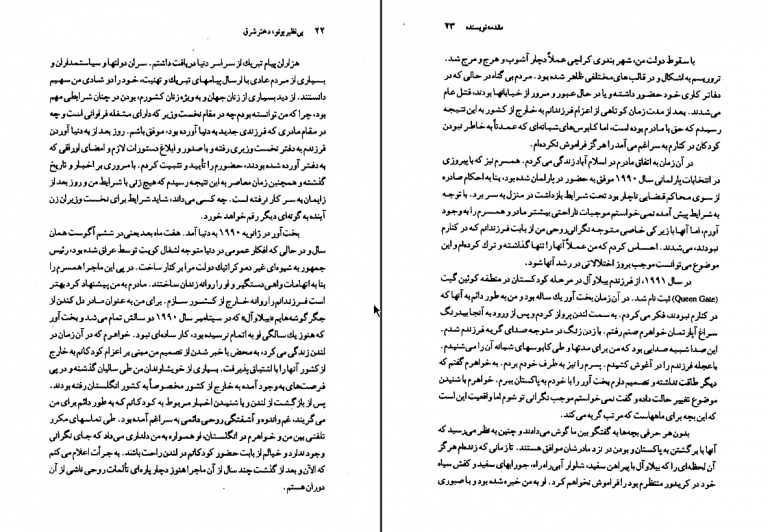 ۲۲ بی‌نظیر بوتو، دختر شرق
هزاران پیام تبریك از سراسر دنیا دریافت داشتم. سران دولتها و سیاستمداران و
بسیاری از مردم عادی با ارسال پیامهای تبریك و تهنیت، خود را در شادی من سهیم
دانستند. از دید بسیاری از زنان جهان و به ویژه زنان کشورم، بودن در چنان شرایطی مهم
بود، چرا که من توانسته بودم چه در مقام نخست وزیر که دارای مشغله فراوانی است و چه
در مقام مادری که فرزندی جدید به دنیا آورده بود، موفق باشم. روز بعد از به دنیا آوردن
فرزندم به دفتر نخست وزیری رفته و با صدور و ابلاغ دستورات لازم و امضای اوراقی که
به دفتر آورده شده بودند، حضورم را تأیید و تثبیت کردم. با مروری بر اخبار و تاریخ
گذشته و همچنین زمان معاصر به این نتیجه رسیدم که هیچ زنی با شرایط من و روز بعد از
زایمان به سر کار نرفته است. چه کسی می‌داند، شاید شرایط برای نخست وزیران زن
آینده به گونه‌ای دیگر رقم خواهد خورد.
بخت‌آور در ژانویه ۱۹۹۰ به دنیا آمد. هفت ماه بعد یعنی در ششم آگوست همان
سال و در حالی که افکار عمومی در دنیا متوجه اشغال کویت توسط عراق شده بود، رئیس
جمهور به شیوه‌ای غیر دموکراتیك دولت مرا برکنار ساخت. در پی این ماجرا همسرم را
بنا به اتهامات واهی دستگیر و او را روانه زندان ساختند. مادرم به من پیشنهاد کرد بهتر
است فرزندانم را روانه خارج از کشور سازم. برای من به عنوان مادر دل کندن از
جگر گوشه‌هایم «بیلاوآل» که در سپتامبر سال ۱۹۹۰ دو سالش تمام می‌شد و بخت‌آور
که هنوز یك سالگی او به اتمام نرسیده بود، کار ساده‌ای نبود. خواهرم که در آن زمان در
لندن زندگی می‌کرد، به محض با خبر شدن از تصمیم من مبنی بر اعزام کودکانم به خارج
از کشور آنها را با اشتیاق پذیرفت. بسیاری از خویشاوندان من طی سالیان گذشته و در پی
فرصت‌های به وجود آمده به خارج از کشور مخصوصاً به کشور انگلستان رفته بودند.
پس از بازگشت از لندن و یا شنیدن اخبار مربوط به کودکانم که به طور دائم برای من
می‌گریند، غم و اندوه و آشفتگی روحی دائمی به سراغم آمده بود. طی تماسهای مکرر
تلفنی بین من و خواهرم در انگلستان، او همواره به من دلداری می‌داد که جای نگرانی
وجود ندارد و خیالم از بابت حضور کودکانم در لندن راحت باشد. به جرأت اعلام می‌کنم
که الآن و بعد از گذشت چند سال از آن ماجرا هنوز دچار پاره‌ای تألمات روحی ناشی از آن
دوران هستم.
مقدمه نویسنده ۲۳
با سقوط دولت من، شهر بندری کراچی عملاً دچار آشوب و هرج و مرج شد.
تروریسم به اشکال و در قالب های مختلفی ظاهر شده بود. مردم بی گناه در حالی که در
دفاتر کاری خود حضور داشته و یا در حال عبور و مرور از خیابانها بودند، قتل عام
می‌شدند. بعد از مدت زمان کوتاهی از اعزام فرزندانم به خارج از کشور به این نتیجه
رسیدم که حق با مادرم بوده است، اما کابوس‌های شبانه‌ای که عمدتاً به خاطر نبودن
کودکان در کنارم به سراغم می‌آمد را هرگز فراموش نکرده‌ام.
در آن زمان به اتفاق مادرم در اسلام آباد زندگی می‌کردم. همسرم نیز که با پیروزی
در انتخابات پارلمانی سال ۱۹۹۰ موفق به حضور در پارلمان شده بود، بنا به احکام صادره
از سوی محاکم قضایی ناچار بود تحت شرایط بازداشت در منزل به سر برد. با توجه
به شرایط پیش آمده نمی‌خواستم موجبات ناراحتی بیشتر مادر و همسرم را به وجود
آورم، اما آنها با زیرکی خاصی متوجه نگرانی روحی من از بابت فرزندانم که در کنارم
نبودند، می‌شدند. احساس کردم که من عملاً آنها را تنها گذاشته و ترك کرده‌ام و این
موضوع می‌توانست موجب بروز اختلالاتی در رشد آنها شود.
در سال ۱۹۹۱، از فرزندم بیلاوآل در مرحله کودکستان در منطقه کوئین گیت
(Queen Gate) ثبت نام شد. در آن زمان بخت آور یك ساله بود و من به طور دائم به آنها که
در کنارم نبودند، فکر می‌کردم. به سمت لندن پرواز کردم و پس از ورود به آنجا بیدرنگ
سراغ آپارتمان خواهرم صنم رفتم. با زدن زنگ در متوجه صدای گریه فرزندم شدم.
این صدا شبیه صدایی بود که من برای مدتها و طی کابوسهای شبانه آن را می‌شنیدم.
با عجله فرزندم را در آغوش کشیدم. پسرم را نیز به طرف خودم بردم. به خواهرم گفتم که
دیگر طاقت نداشته و تصمیم دارم بخت آور را با خودم به پاکستان ببرم. خواهرم با شنیدن
موضوع تغییر حالت داده و گفت نمی‌خواستم موجب نگرانی تو شوم اما واقعیت این است
که این بچه برای ماههاست که مرتب گریه می‌کند.
بدون هر حرفی بچه‌ها به گفتگو بین ما گوش می‌دادند و چنین به نظر می‌رسید که
آنها با برگشتن به پاکستان و بودن در نزد مادرشان موافق هستند. تا زمانی که زنده‌ام هرگز
آن لحظه‌ای را که بیلاوآل با پیراهن سفید، شلوار آبی راه راه، جورابهای سفید و کفش سیاه
خود در کریدور منتظرم بود را فراموش نخواهم کرد. او به من خیره شده بود و با صبوری